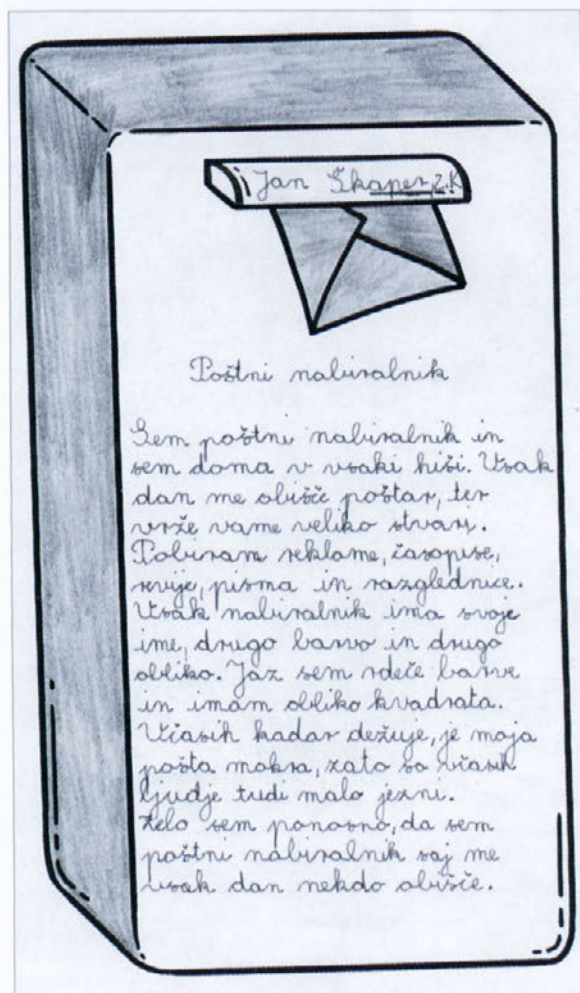 Jan Škaper, 2.K
Poštni nabiralnik
Sem poštni nabiralnik in
sem doma v vsaki hiši. Vsak
dan me obišče poštar, ter
vrže vame veliko stvari.
Pobiram reklame, časopise,
revije, pisma in razglednice.
Vsak nabiralnik ima svoje
ime, drugo barvo in drugo
obliko. Jaz sem rdeče barve
in imam obliko kvadrata.
Včasih kadar dežuje, je moja
pošta mokra, zato so včasih
ljudje tudi malo jezni.
Zelo sem ponosno, da sem
poštni nabiralnik saj me
vsak dan nekdo obišče.